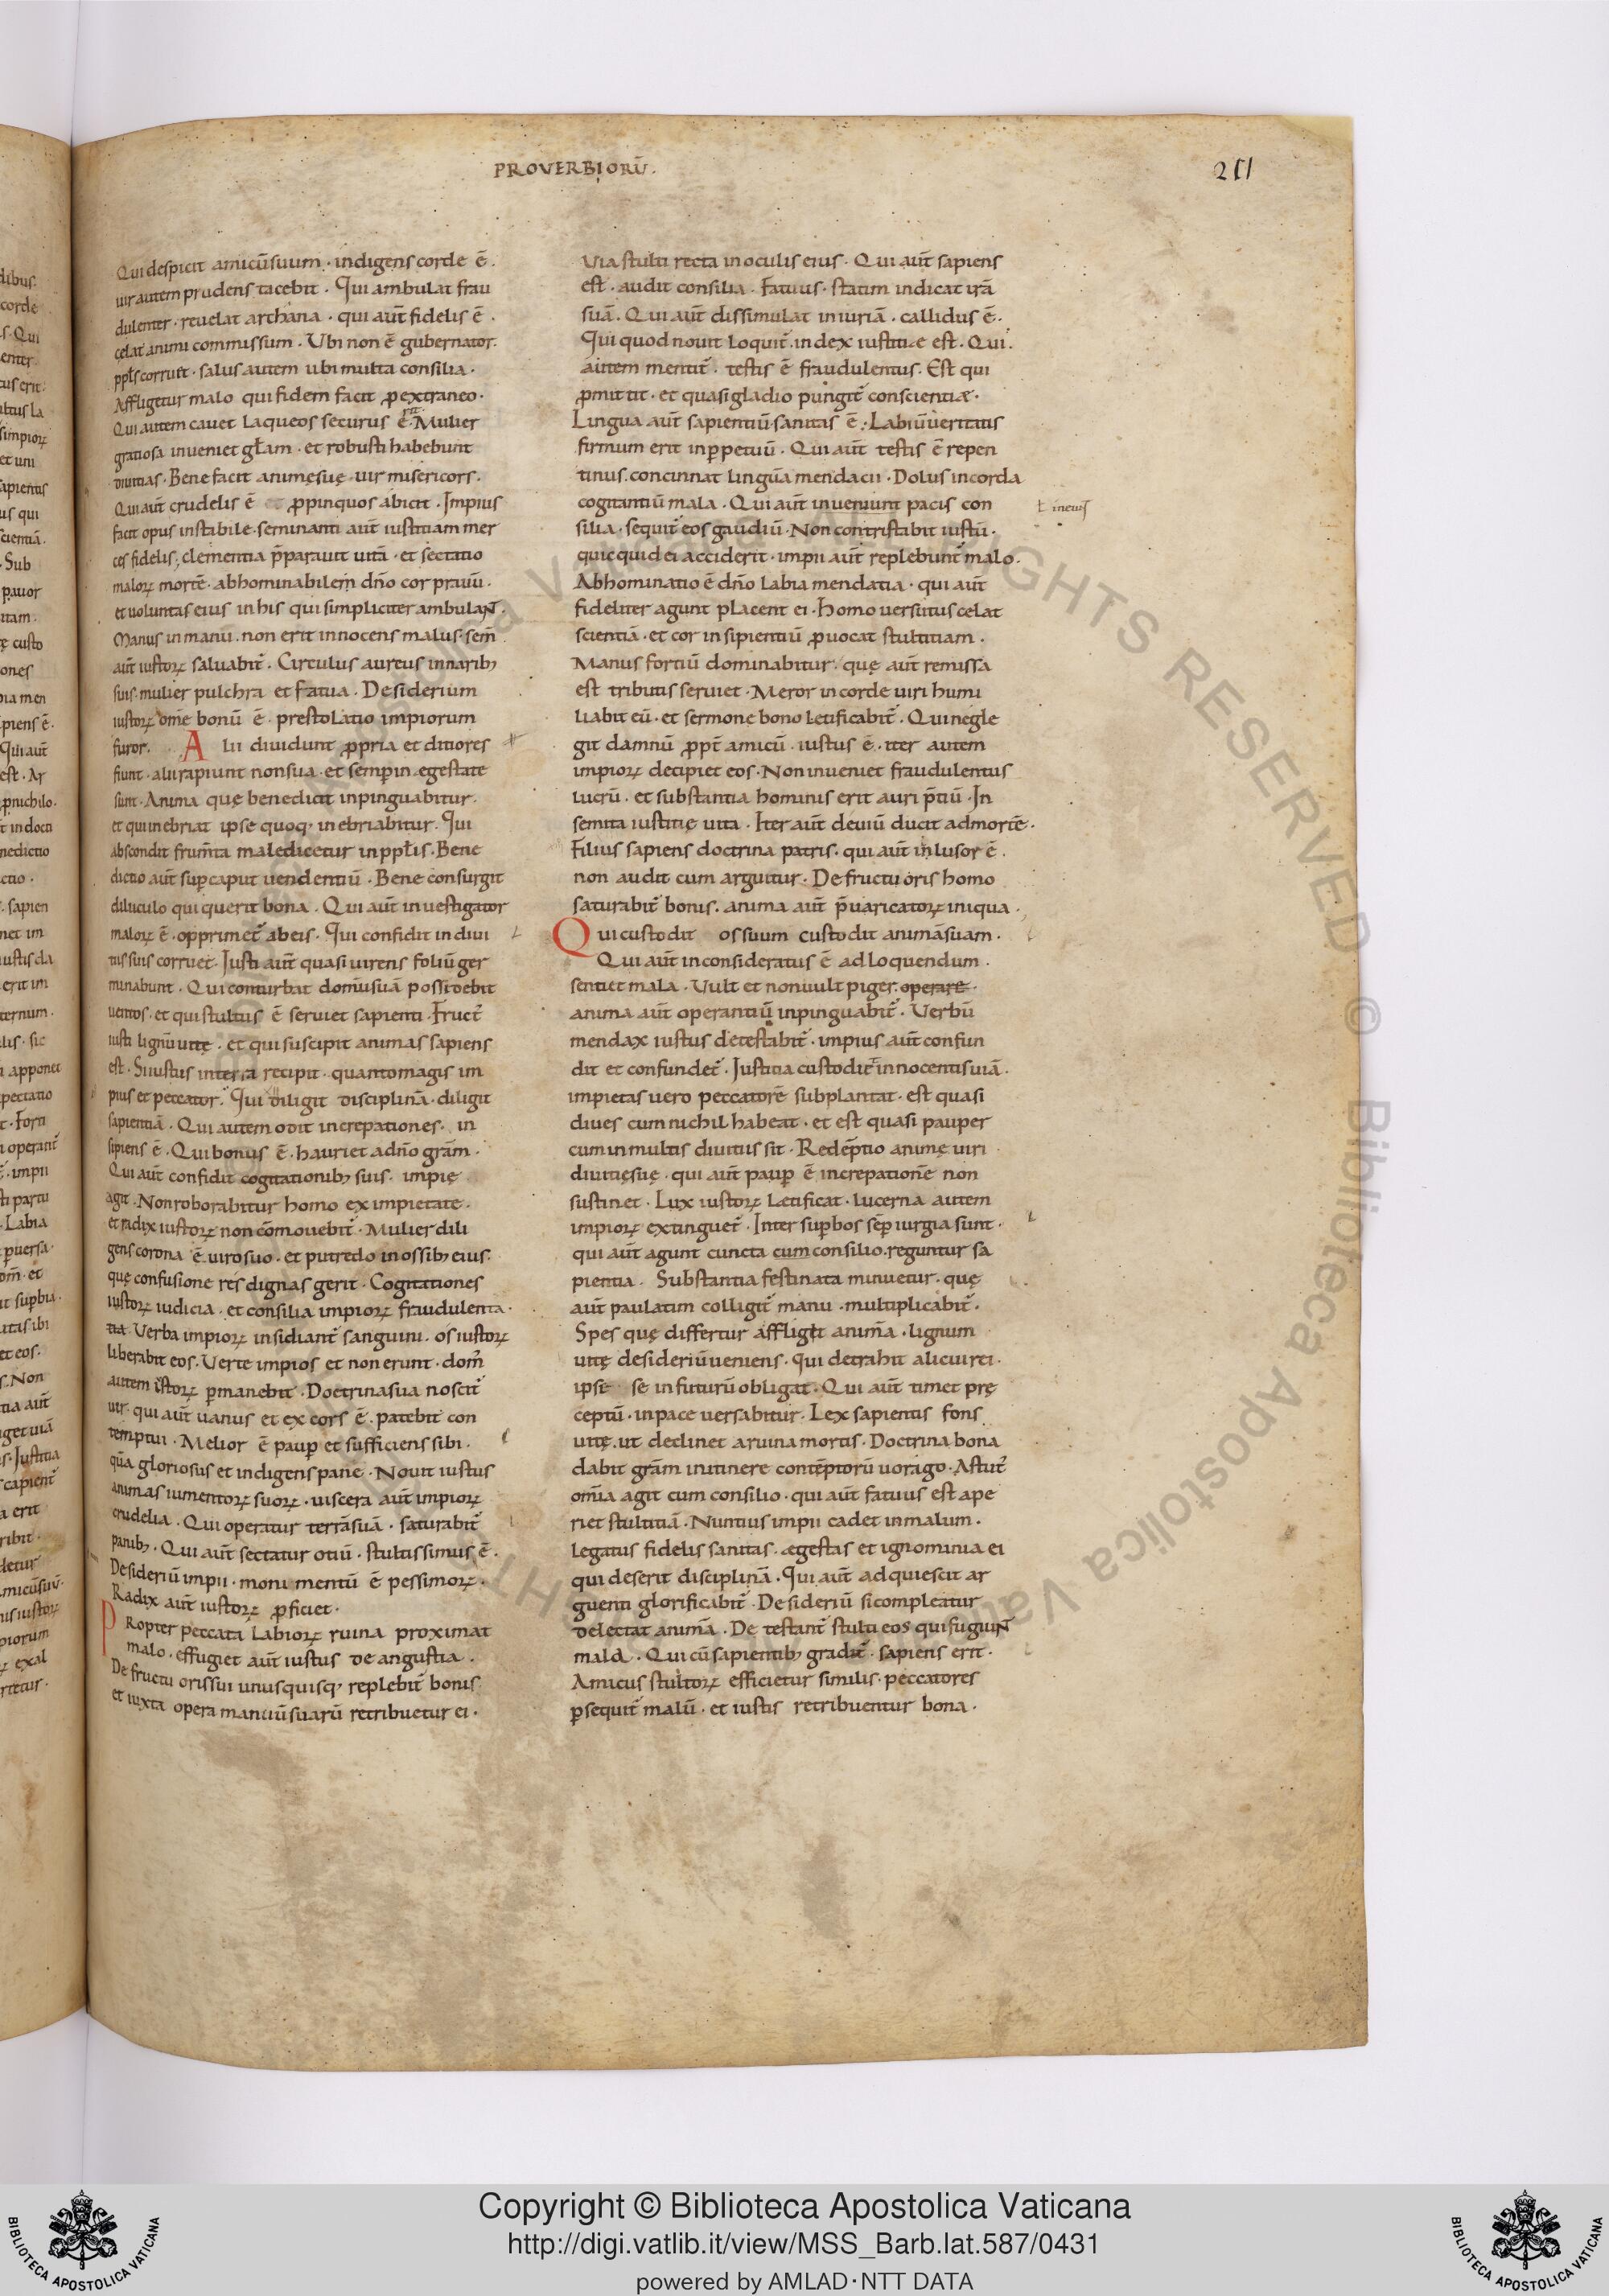 PROVERBIORU᷒. 211
Qui despicit amicū suum · indigens corde ē ·
uir autem prudens tacebit · Qui ambulat frau
dulenter · reuelat archana · qui aūt fidelis ē ·
celat animi commissum · Ubi non ē gubernator ·
ppl̄s corruet · salus autem ubi multa consilia ·
Affligetur malo qui fidem facit ꝓ extraneo ·
Qui autem cauet laqueos securus ē · Mulier
gratiosa inueniet gl̄am · et robusti habebunt
diuitias · Bene facit animę suę uir misericors ·
Qui aūt crudelis ē et ꝓpinquos abicit · Impius
facit opus instabile · seminanti aūt iustitiam mer
ces fidelis · clementia p̄parauit uitā · et sectatio
maloꝝ mortē · abhominabilem dn̄o cor prauū ·
et uoluntas eius in his qui simpliciter ambulant̄ ·
Manus in manu · non erit innocens malus · sem̄
aūt iustoꝝ saluabit᷑ · Circulus aureus in naribꝫ
suis · mulier pulchra et fatua · Desiderium
iustoꝝ om̄e bonū ē · prestolatio impiorum
furor · Alii diuidunt ꝓpria et ditiores
fiunt · alii rapiunt non sua · et semꝑ in egestate
sunt · Anima quę benedicit inpinguabitur ·
et qui inebriat ipse quoqꝫ inebriabitur · Qui
abscondit frum̄ta maledicetur in ppl̄is · Bene
dictio aūt suꝑ caput uendentiū · Bene consurgit
diluculo qui querit bona · Qui aūt inuestigator
maloꝝ ē · opprimet᷑ ab eis · Qui confidit in diui
tiis suis corruet · Iusti aūt quasi uirens foliū ger
minabunt · Qui conturbat domū suā possidebit
uentos · et qui stultus ē seruiet sapienti · Fruct᷑
iusti lignū uitę · et qui suscipit animas sapiens
est · Si iustus in terra recipit · quanto magis im
pius et peccator · Qui diligit disciplinā · diligit
sapientiā · Qui autem odit increpationes · in
sipiens ē · Qui bonus ē · hauriet a dn̄o gr̄am ·
Qui aūt confidit cogitationibꝫ suis · impię
agit · Non roborabitur homo ex impietate ·
et radix iustoꝝ non cōmouebit᷑ · Mulier dili
gens corona ē uiro suo · et putredo in ossibꝫ eius ·
quę confusione res dignas gerit · Cogitationes
iustoꝝ iudicia · et consilia impioꝝ fraudulenta ·
tia Verba impioꝝ insidiant᷑ sanguini · os iustoꝝ
liberabit eos · Verte impios et non erunt · dom᷑
autem istoꝝ ꝑmanebit · Doctrina sua noscit᷑
uir · qui aūt uanus et excors ē · patebit con
temptui · Melior ē pauꝑ et sufficiens sibi ·
quā gloriosus et indigens pane · Nouit iustus
animas iumentoꝝ suoꝝ · uiscera aūt impioꝝ
crudelia · Qui operatur terrā suā · saturabit᷑
panibꝫ · Qui aūt sectatur otiū · stultissimus ē ·
Desideriū impii · monimentū ē pessimoꝝ ·
Radix aūt iustoꝝ ꝓficiet ·
Propter peccata labioꝝ ruina proximat
malo · effugiet aūt iustus de angustia ·
De fructu oris sui unusquisqꝫ replebit᷑ bonis
et iuxta opera manuū suarū retribuetur ei ·
Via stulti recta in oculis eius · Qui aūt sapiens
est · audit consilia · Fatuus · statim indicat irā
suā · Qui aūt dissimulat iniuriā · callidus ē ·
Qui quod nouit loquit᷑ · index iustitiae est · Qui ·
autem mentit᷑ · testis ē fraudulentus · Est qui
ꝓmittit · et quasi gladio pungit᷑ conscientiæ ·
Lingua aūt sapientiū sanitas ē · Labiū ueritatis
firmum erit in ꝑpetuū · Qui aūt testis ē repen
tinus · concinnat linguā mendacii · Dolus in corda
cogitantiū mala · Qui aūt inueniunt pacis con
silia · sequit᷑ eos gaudiū · Non contristabit iustū ·
quicquid ei acciderit · impii aūt replebunt᷑ malo ·
Abhominatio ē dn̄o labia mendatia · qui aūt
fideliter agunt placent ei · Homo uersutus celat
scientiā · et cor insipientiū ꝓuocat stultitiam ·
Manus fortiū dominabitur · quę aūt remissa
est tributis seruiet · Meror in corde uiri humi
liabit eū · et sermone bono letificabit᷑ · Qui negle
git damnū ꝓpt̄ amicū · iustus ē · iter autem
impioꝝ decipiet eos · Non inueniet fraudulentus
lucrū · et substantia hominis erit auri p̄tiū · In
semita iustitię uita · Iter aūt deuiū ducit ad mortē ·
Filius sapiens doctrina patris · qui aūt inlusor ē ·
non audit cum arguitur · De fructu oris homo
saturabit᷑ bonis · anima aūt p̄uaricatoꝝ iniqua ·
Qui custodit os suum custodit animā suam ·
Qui aūt inconsideratus ē ad loquendum ·
sentiet mala · Vult et non uult piger · operare ·
anima aūt operantiū inpinguabit᷑ · Verbū
mendax iustus detestabit᷑ · impius aūt confun
dit et confundet᷑ · Iustitia custodit innocentis uiā ·
impietas uero peccatorē subplantat · est quasi
diues cum nichil habeat · et est quasi pauper
cum in multis diuitiis sit · Redēptio animę uiri
diuitię suę · qui aūt pauꝑ ē increpationē non
sustinet · Lux iustoꝝ letificat · lucerna autem
impioꝝ extinguet᷑ · Inter suꝑbos seꝑ iurgia sunt ·
qui aūt agunt cuncta cum consilio · reguntur sa
pientia · Substantia festinata minuetur · quę
aūt paulatim colligit᷑ manu · multiplicabit᷑ ·
Spes quę differtur affligit anim̄a · lignum
uitę desideriū ueniens · qui detrahit alicui rei ·
ipse se in futurū obligat · Qui aūt timet prę
ceptū · in pace uersabitur · Lex sapientis fons
uitę · ut declinet a ruina mortis · Doctrina bona
dabit gr̄am in itinere contēptorū uorago · Astut᷑
om̄ia agit cum consilio · qui aūt fatuus est ape
riet stultitiā · Nuntius impii cadet in malum ·
legatus fidelis sanitas · ægestas et ignominia ei
qui deserit disciplinā · Qui aūt adquiescit ar
guenti glorificabit᷑ · Desideriū si compleatur
delectat animā · Detestant᷑ stulti eos qui fugiunt̄
mala · Qui cū sapientibꝫ gradit᷑ · sapiens erit ·
Amicus stultoꝝ efficietur similis · peccatores
ꝑsequit᷑ malū · et iustis retribuentur bona ·
Copyright © Biblioteca Apostolica Vaticana
http://digi.vatlib.it/view/MSS_Barb.lat.587/0431
powered by AMLAD·NTT DATA
BIBLIOTECA APOSTOLICA VATICANA
BIBLIOTECA APOSTOLICA VATICANA